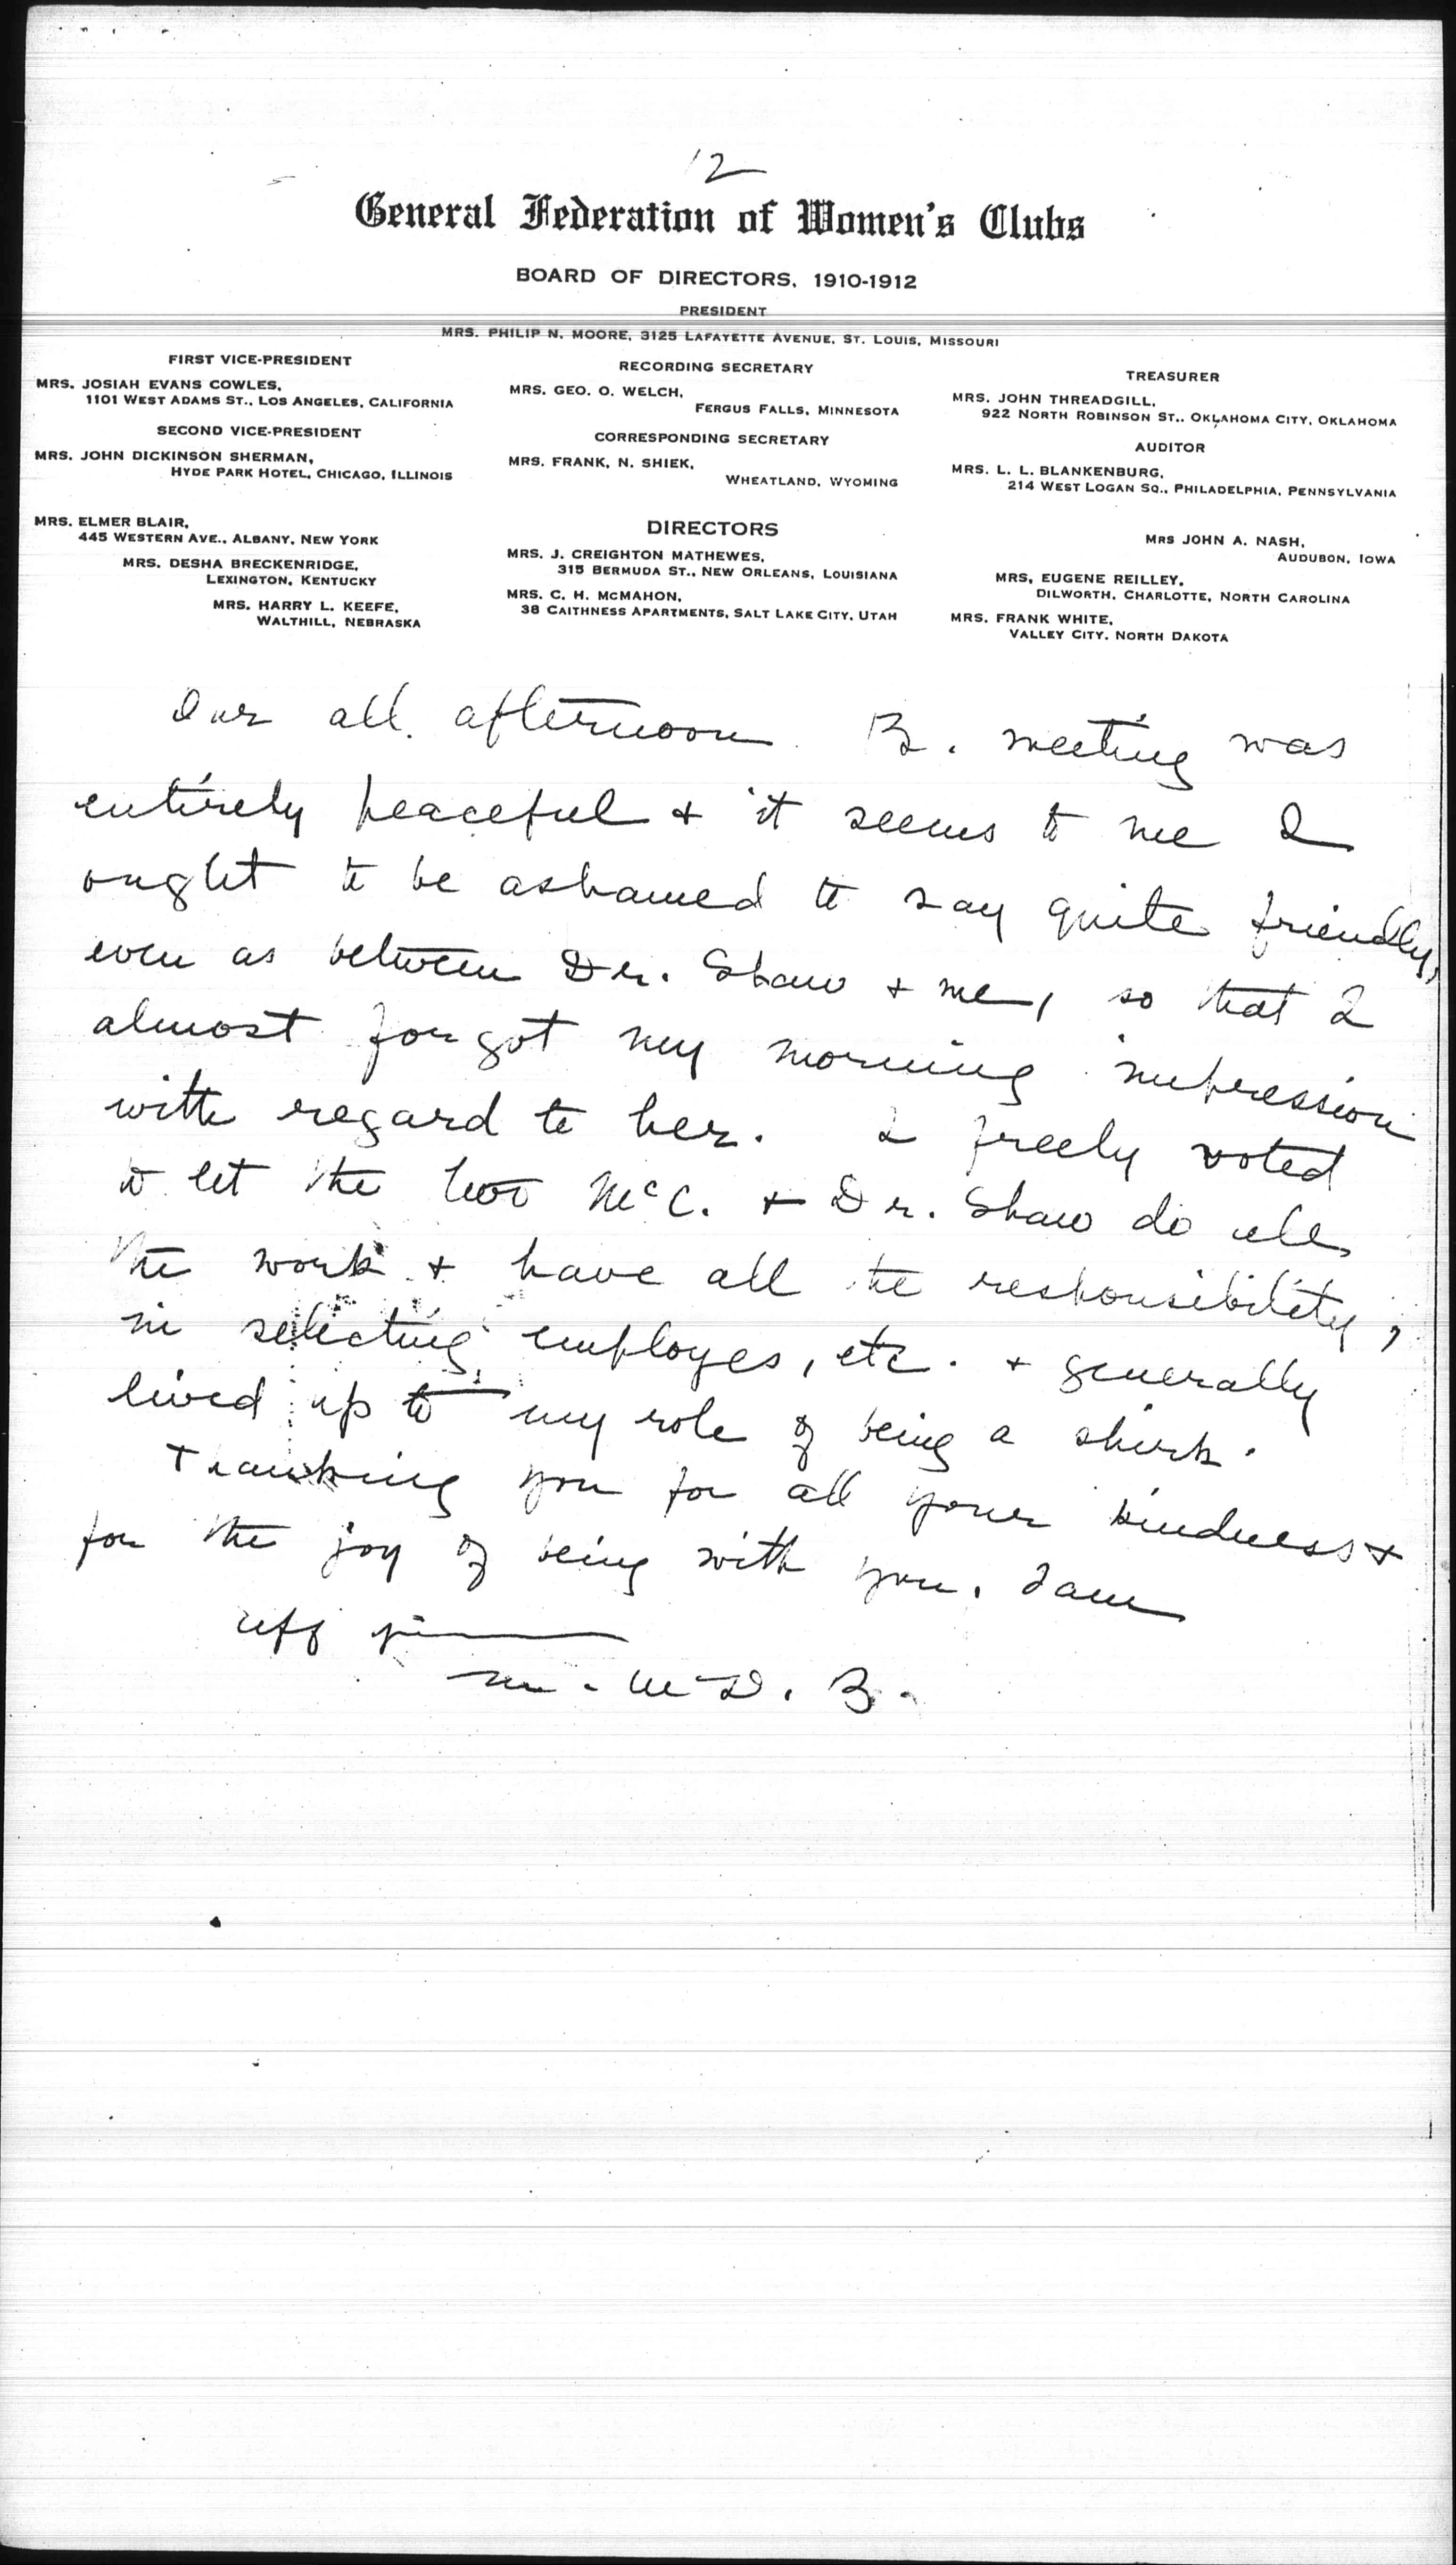 12
General Federation of Women's Clubs
BOARD OF DIRECTORS, 1910-1912
PRESIDENT
MRS. PHILIP N. MOORE, 3125 LAFAYETTE AVENUE, ST. LOUIS, MISSOURI
FIRST VICE-PRESIDENT
MRS. JOSIAH EVANS COWLES,
1101 WEST ADAMS ST., LOS ANGELES, CALIFORNIA
SECOND VICE-PRESIDENT
MRS. JOHN DICKINSON SHERMAN,
HYDE PARK HOTEL, CHICAGO, ILLINOIS
RECORDING SECRETARY
MRS. GEO. O. WELCH,
FERGUS FALLS, MINNESOTA
CORRESPONDING SECRETARY
MRS. FRANK, N. SHIEK,
WHEATLAND, WYOMING
TREASURER
MRS. JOHN THREADGILL,
922 NORTH ROBINSON ST., OKLAHOMA CITY, OKLAHOMA
AUDITOR
MRS. L. L. BLANKENBURG,
214 WEST LOGAN SQ., PHILADELPHIA, PENNSYLVANIA
DIRECTORS
MRS. ELMER BLAIR,
445 WESTERN AVE., ALBANY, NEW YORK
MRS. DESHA BRECKENRIDGE,
LEXINGTON, KENTUCKY
MRS. HARRY L. KEEFE,
WALTHILL, NEBRASKA
MRS. J. CREIGHTON MATHEWES,
315 BERMUDA ST., NEW ORLEANS, LOUISIANA
MRS. C. H. McMAHON,
38 CAITHNESS APARTMENTS, SALT LAKE CITY, UTAH
MRS JOHN A. NASH,
AUDUBON, IOWA
MRS, EUGENE REILLEY,
DILWORTH, CHARLOTTE, NORTH CAROLINA
MRS. FRANK WHITE,
VALLEY CITY, NORTH DAKOTA
Our all afternoon B. meeting was
entirely peaceful + it seems to me I
ought to be ashamed to say quite friendly,
even as between Dr. Shaw + me, so that I
almost forgot my morning impression
with regard to her. I freely voted
to let the two McC. + Dr. Shaw do all
the work + have all the responsibility,
in selecting employes, etc. + generally
lived up to my role of being a shirk.
Thanking you for all your kindness +
for the joy of being with you, I am
Aff
M. McD. B.